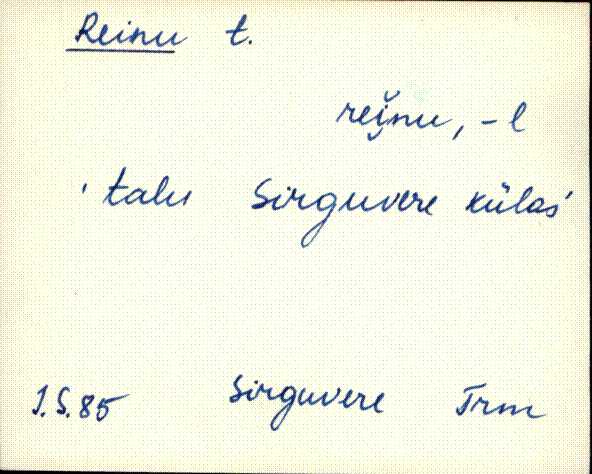 Reinu t.
rei̯nu, -l
' talu Sirguvere külas'
J.S.85 Sirguvere Trm